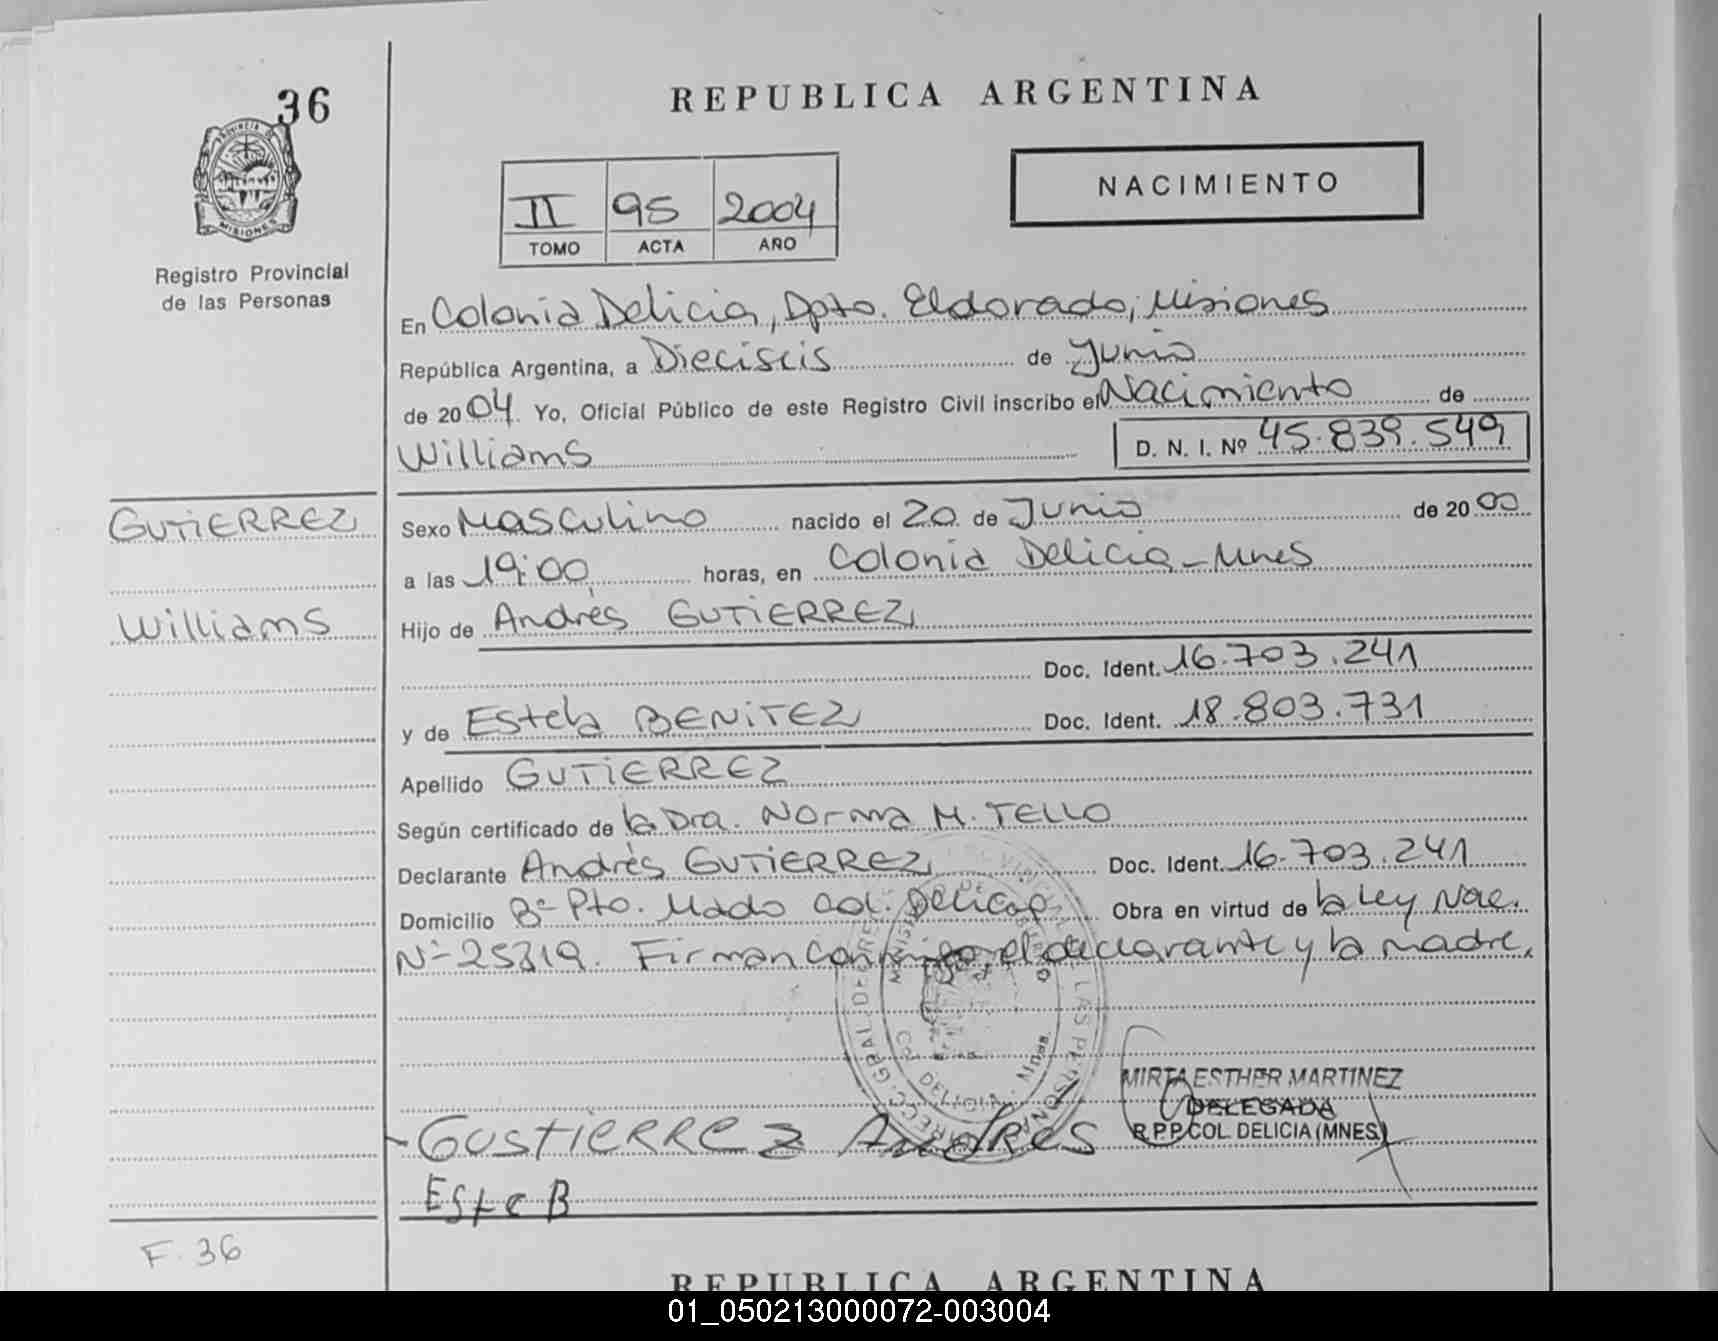 36
REPUBLICA ARGENTINA
PROVINCIA DE
MISIONES
Registro Provincial
de las Personas
NACIMIENTO
II 95 2004
TOMO ACTA AÑO
En Colonia Delicia, Dpto. Eldorado, Misiones
República Argentina, a Dieciseis de Junio
de 2004. Yo, Oficial Público de este Registro Civil inscribo el Nacimiento de
Williams D. N. I. Nº 45.839.549
GUTIERREZ
Williams
Sexo Masculino nacido el 20 de Junio de 2000
a las 19:00 horas, en Colonia Delicia - Mnes
Hijo de Andrés GUTIERREZ
Doc. Ident. 16.703.241
y de Estela BENITEZ Doc. Ident. 18.803.731
Apellido GUTIERREZ
Según certificado de la Dra. Norma M. TELLO
Declarante Andrés GUTIERREZ Doc. Ident. 16.703.241
Domicilio Bº Pto. Mado Col. Delicia Obra en virtud de la Ley Nac.
Nº 25819. Firman conmigo el declarante y la madre.
MIRTA ESTHER MARTINEZ
DELEGADA
R.P.P. COL. DELICIA (MNES)
GUSTIERREZ ANdRES
Este B
F. 36
REPUBLICA ARGENTINA
01_050213000072-003004